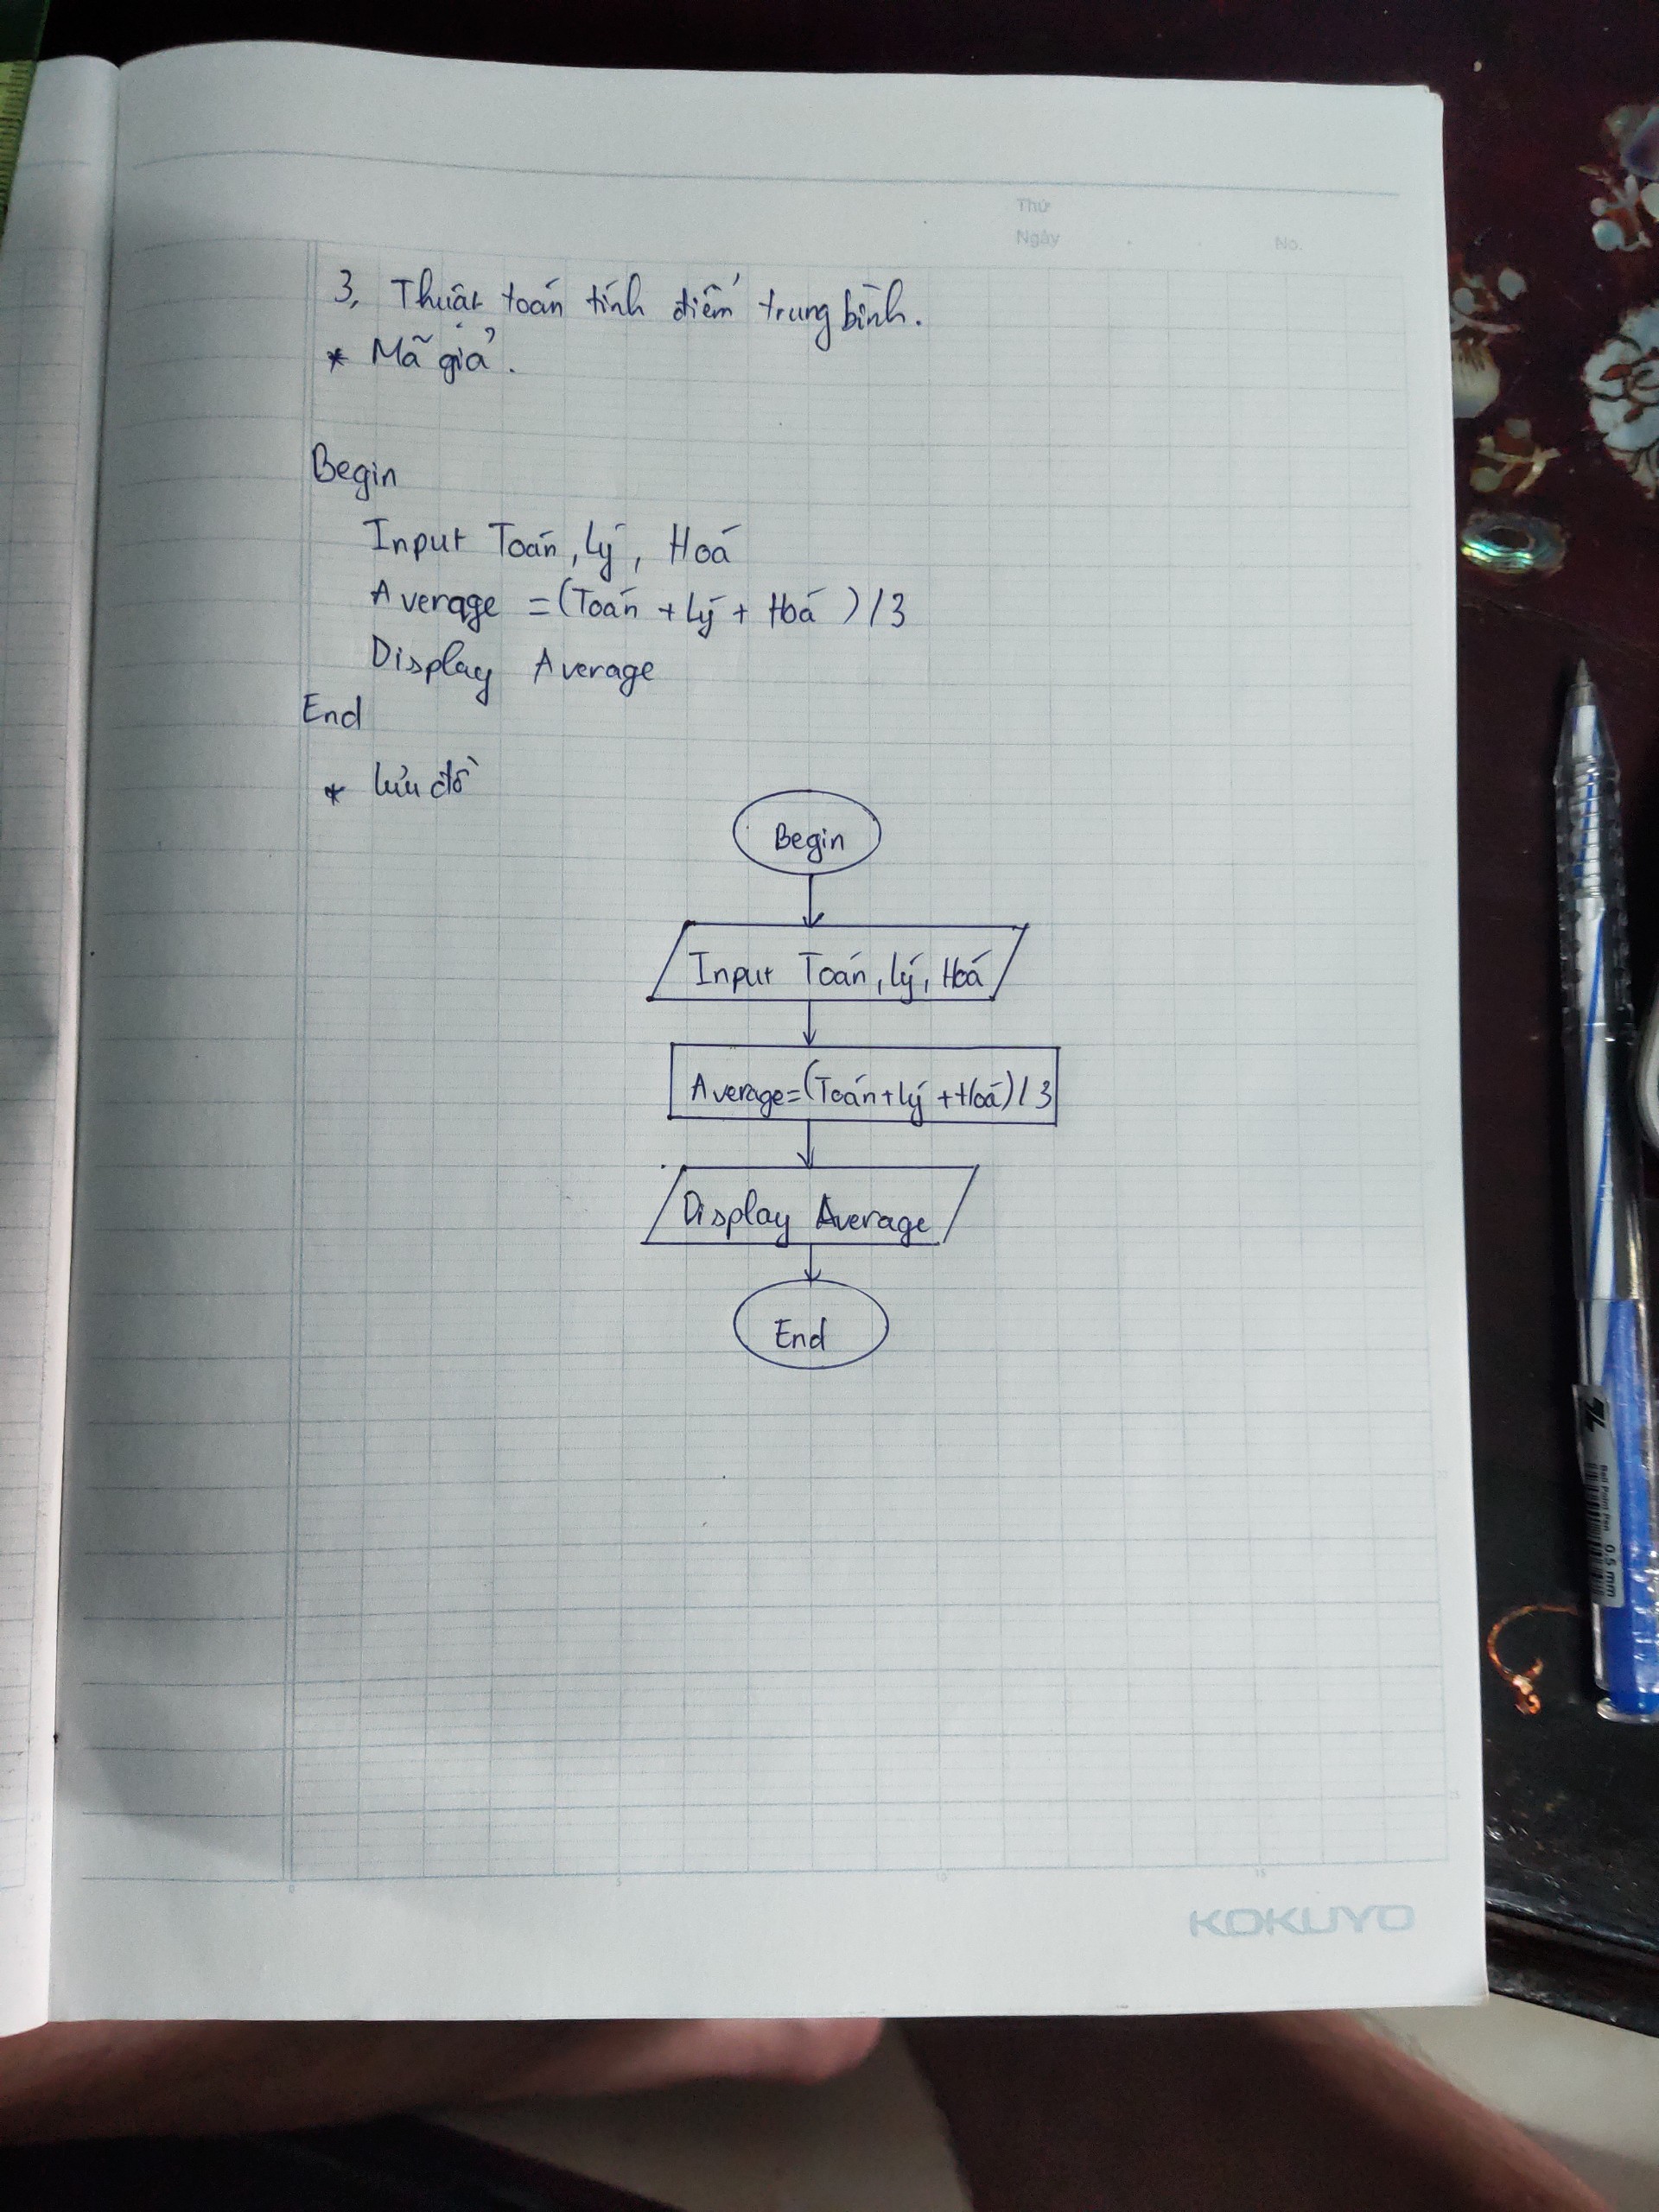 Thứ
Ngày . . No.
3, Thuật toán tính điểm trung bình.
* Mã giả.
Begin
Input Toán, Lý, Hoá
Average = (Toán + Lý + Hoá) / 3
Display Average
End
* Lưu đồ
Begin
Input Toán, Lý, Hoá
Average = (Toán + Lý + Hoá) / 3
Display Average
End
0 5 10 15
KOKUYO
Ball Point Pen 0.5 mm